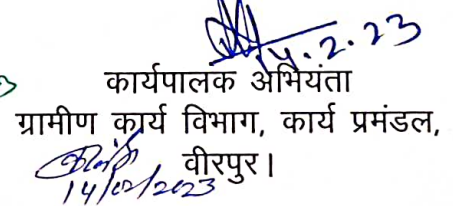 14.2.23
कार्यपालक अभियंता
ग्रामीण कार्य विभाग, कार्य प्रमंडल,
वीरपुर।
14/02/2023